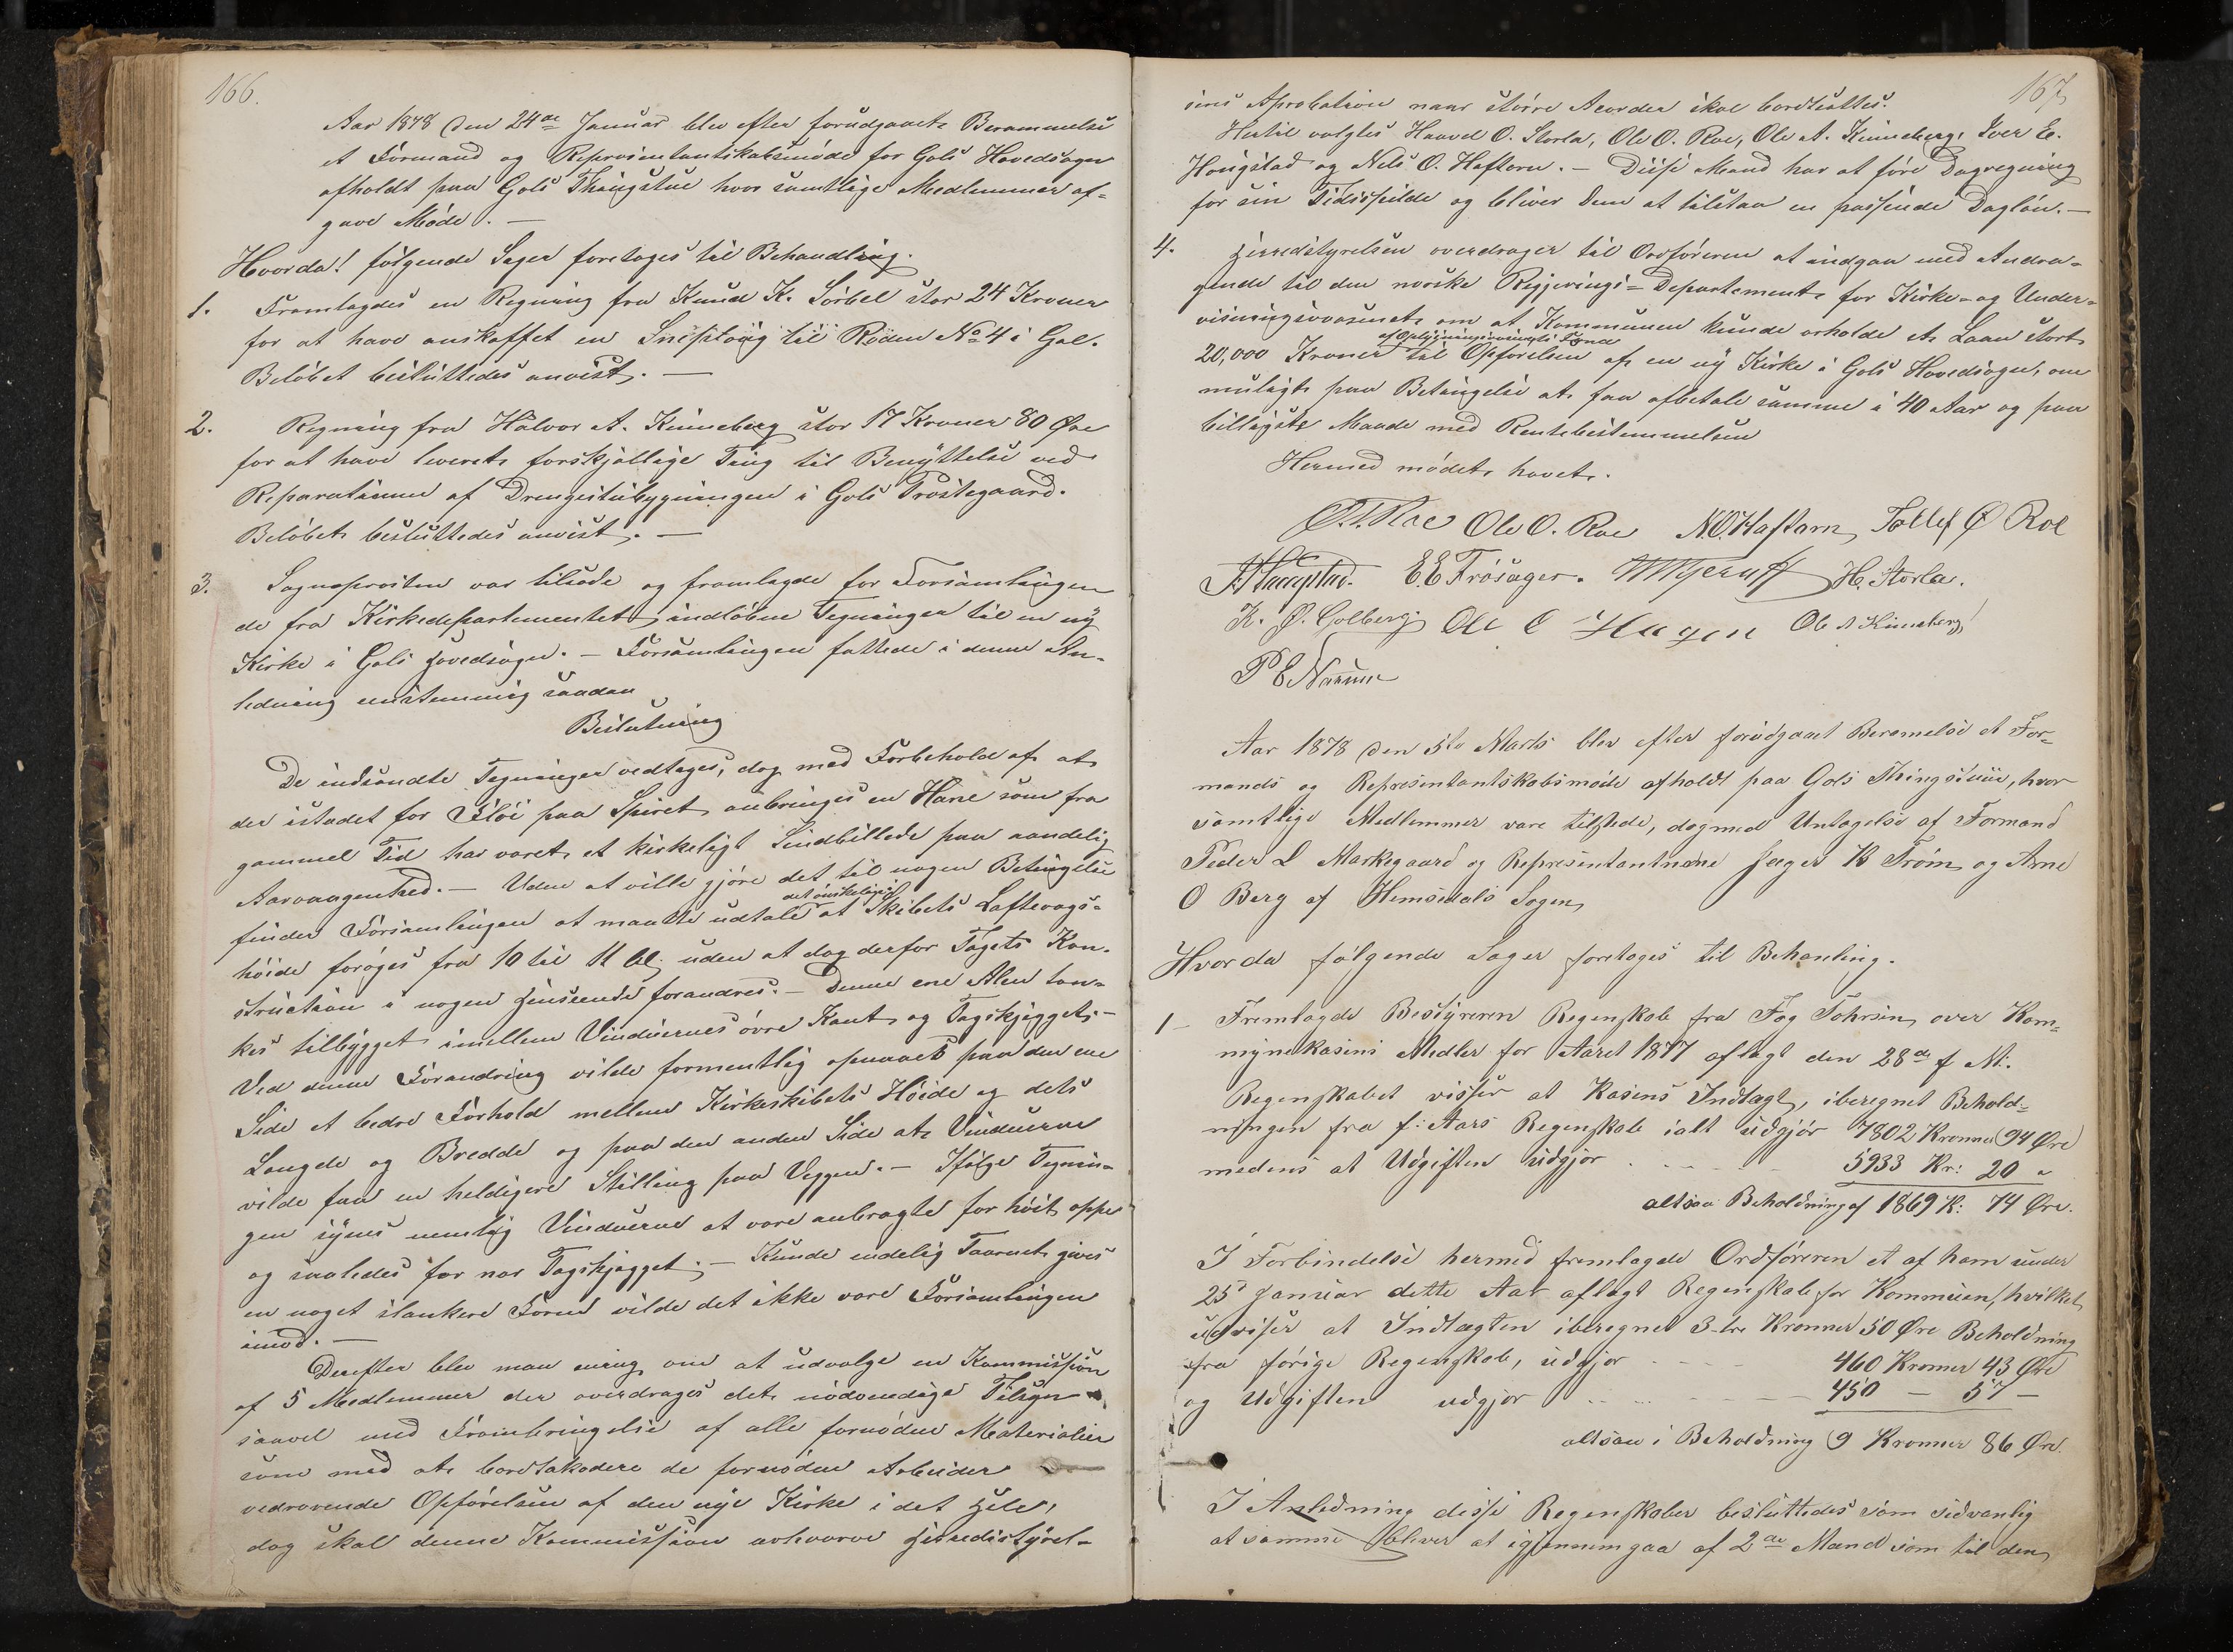 166.
Aar 1878 den 24de Januar blev efter forudgaaet Berammelse
et Formand og Repræsentantskabsmøde for Gols Hovedsogn
afholdt paa Gols Thingstue hvor samtlige Medlemmer af-
gave Møde. —
Hvorda! følgende Sager foretoges til Behandling.
1. Fremlagdes en Regning fra Knud K. Sørbel stor 24 Kroner
for at have anskaffet en til Roden No 4 i Gol.
Beløbet besluttedes anvist. —
2. Regning fra Halvor A. Kinneberg stor 17 Kroner 80 Øre
for at have leveret forskjællige Ting til Benyttelse ved
Reparationen af Drengestubygningen i Gols Præstegaard.
Beløbet besluttedes anvist. —
3. Sognepresten var tilstæde og fremlagde for Forsamlingen
de fra Kirkedepartementet indløbne Tegninger til en ny
Kirke i Gols Hovedsogn. — Forsamlingen fattede i denne An-
ledning enstemmig saadan
Beslutning
De indsendte Tegninger vedtages, dog med Forbehold af at
der istædet for Fløi paa Spiret anbringes en Hane som fra
gammel Tid har været et kirkeligt Sindbillede paa aandelig
Aarvaagenhed. — Uden at ville gjøre det til nogen Betingelse
finder Forsamlingen at maatte udtale det ønskelige i at Skibets Loftevægs-
høide forøges fra 10 til 11 Al. uden at dog derfor Tagets Kon-
struction i nogen Henseende forandres. — Denne ene Alen tæn-
kes tilbygget imellem Vinduernes øvre Kant og Tagskjægget. —
Ved denne Forandring vilde formentlig opnaaes paa den ene
Side et bedre Forhold mellem Kirkeskibets Høide og dets
Længde og Bredde og paa den anden Side at Vinduerne
vilde faa en heldigere Stilling paa Væggen. — Ifølge Tegnin-
gen synes nemlig Vinduerne at være anbragte for høit oppe
og saaledes for nær Tagskjægget. — Kunde endelig Taarnet gives
en noget slankere Form vilde det ikke være Forsamlingen
imod. —
Derefter blev man enig om at udvælge en Kommission
af 5 Medlemmer der overdrages det nødvendige Tilsyn
saavel med Frembringelse af alle fornødne Materialier
som med at bortakodere de fornødne Arbeider
vedrørende Opførelsen af den nye Kirke i det Hele,
dog skal denne Kommission erhverve Herredsstyrel-
167
sens Aprobation naar større Acorder skal bortsættes.
Hertil valgtes Haavel O. Storla, Ole O. Roe, Ole A. Kinneberg, Iver E.
Haugstad og Nels O. Haftorn. — Disse Mænd har at føre Dagregning
for sin Tidsspilde og bliver dem at tilstaa en passende Dagløn. —
4. Herredstyrelsen overdrager til Ordføreren at indgaa med Andra-
gende til den norske Regjerings-Departement for Kirke- og Under-
visningsvæsenet om at Kommunen kunde erholde et Laan stort
20,000 Kroner af Oplysningsvæsenets Fond til Opførelsen af en ny Kirke i Gols Hovedsogn, om
muligt paa Betingelse at faa afbetale samme i 40 Aar og paa
billigste Maade med Rentebestemmelsen
Hermed mødet hævet.
O. T. Roe Ole O. Roe N. O. Haftorn Tollef O Roe
Haugstad. E. E. Frøsager. H. Storla.
K. O. Golberg Ole O Hagen Ole A Kinneberg
P E Narum
Aar 1878 den 5te Marts blev efter forudgaaet Beramelse et For-
mands og Repræsentantskabsmøde afholdt paa Gols Thingstue, hvor
samtlige Medlemmer vare tilstede, dog med Untagelse af Formand
Peder L Markegaard og Repræsentantnerne Jager K Trøim og Arne
O Berg af Hemsedals Sogn
Hvorda følgende Sager foretoges til Behanling.
1 — Fremlagde Bestyreren Regenskab fra Fog Tohrsen over Kom-
mynekasens Medler for Aaret 1877 aflagt den 28de f. M.
Regenskabet visser at Kasens Indtægt, iberegnet Behold-
ningen fra f: Aars Regenskab ialt udgjør 7802 Kroner 94 Øre
medens at Udgiften udgjør . . . . . 5933 Kr: 20 "
altsaa Beholdning af 1869 K: 74 Øre.
I Forbindelse hermed fremlagde Ordføreren et af ham under
25d Januar dette Aar aflagt Regenskab for Kommunen, hvilket
udviser at Indtægten iberegnet 3-tre Kroner 50 Øre Beholdning
fra forige Regenskab, udgjør . . . 460 Kroner 43 Øre
og Udgiften udgjør . . . 450 — 57 —
altsaa i Beholdning 9 Kronner 86 Øre.
I Anledning disse Regenskaber besluttedes som sedvanlig
at samme bliver at igjennemgaa af 2de Mænd som til den